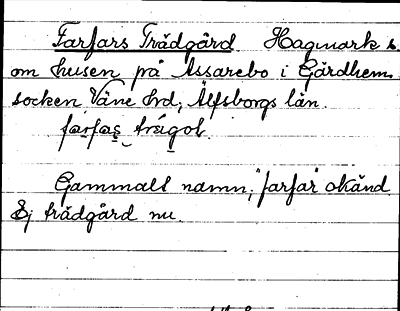 Farfars Trädgård. Hagmark s.
om husen på Assarebo i Gärdhem
socken Väne hrd, Älfsborgs län.
farfas trägol.
Gammalt namn; "farfar" okänd
Ej trädgård nu.